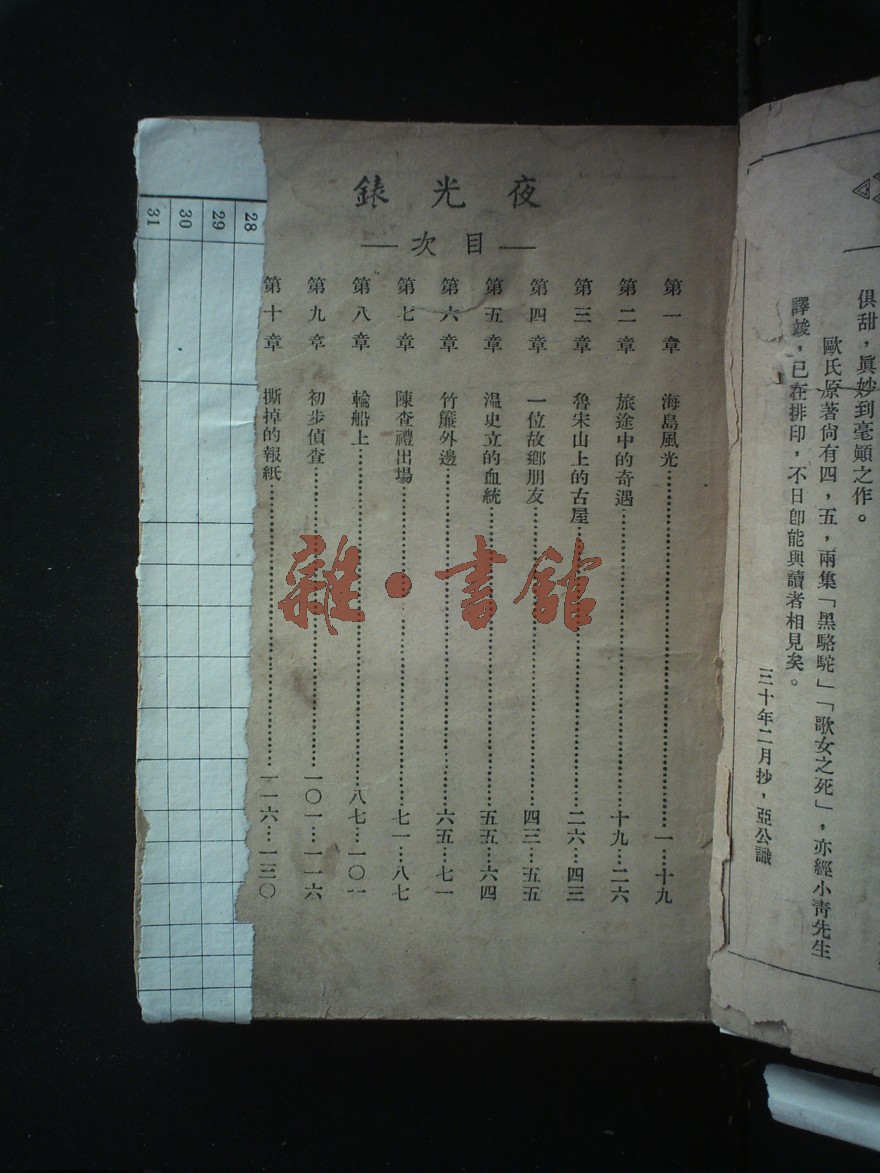 俱甜，眞妙到毫顚之作。
歐氏原著尙有四，五，兩集「黑駱駝」「歌女之死」，亦經小靑先生
譯竣，已在排印，不日卽能與讀者相見矣。
三十年二月抄，亞公識
夜光錶
—目次—
第一章 海島風光……一…十九
第二章 旅途中的奇遇……十九…二六
第三章 魯宋山上的古屋……二六…四三
第四章 一位故鄉朋友……四三…五五
第五章 溫史立的血統……五五…六四
第六章 竹簾外邊……六五…七一
第七章 陳查禮出場……七一…八七
第八章 輪船上……八七…一〇一
第九章 初步偵查……一〇一…一一六
第十章 撕掉的報紙……一一六…一三〇
28
29
30
31
雜·書館